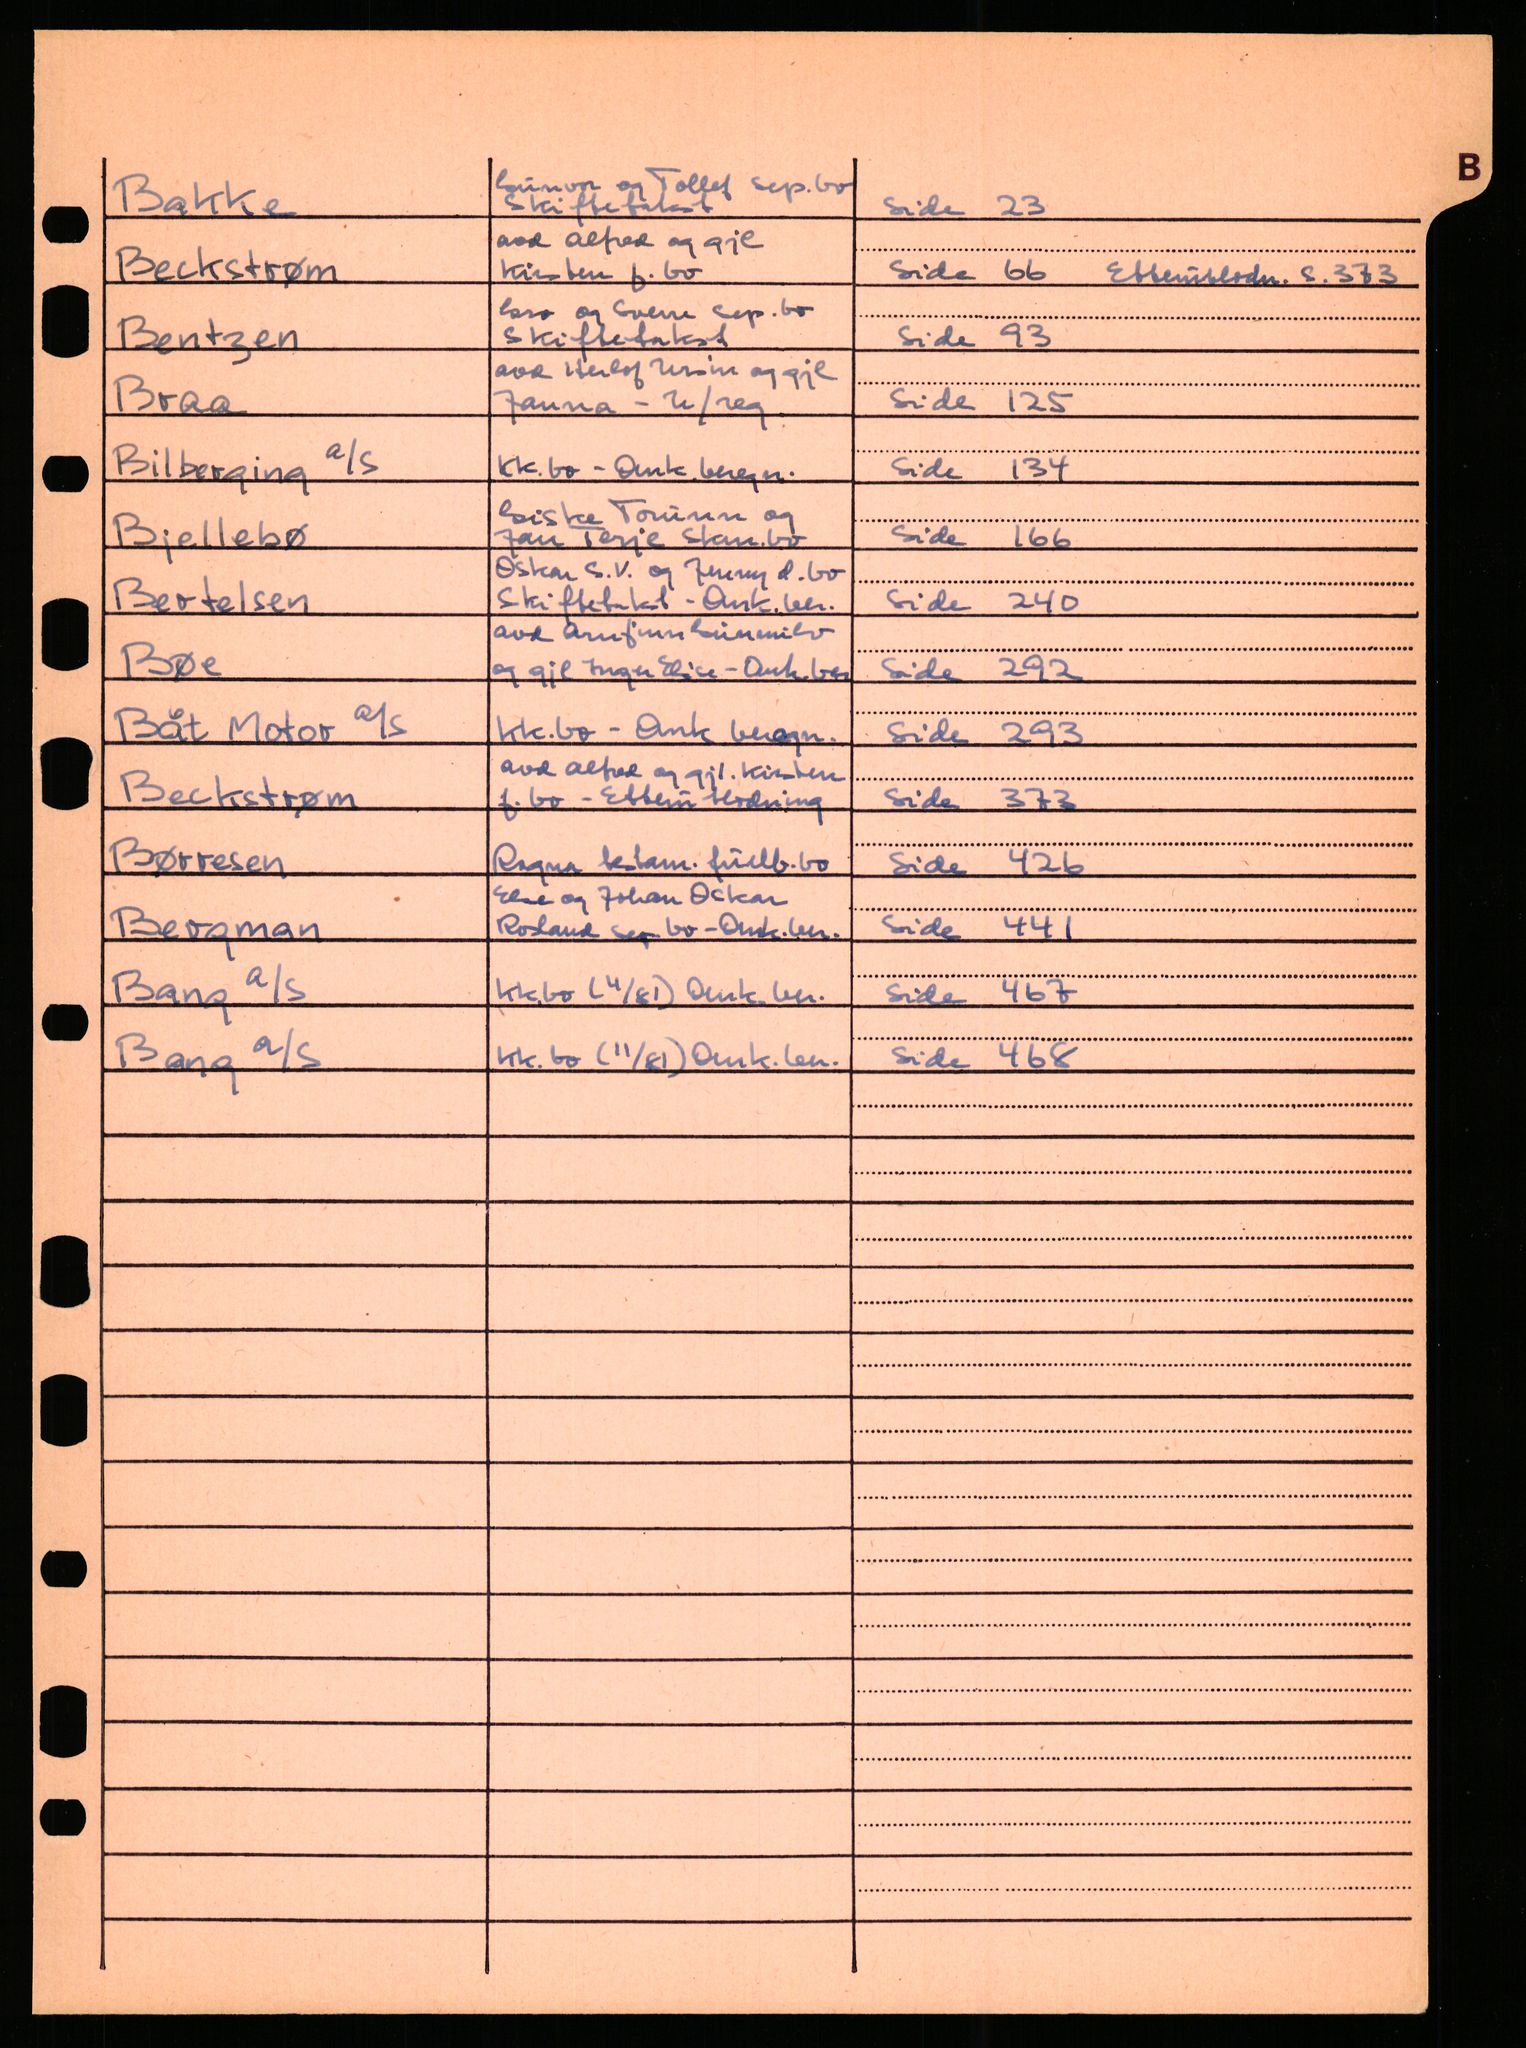 B
Bakke Gunvor og Tollef sep.bo
Skiftetakst Side 23
Beckstrøm avd Alfred og gjl
Kirsten f.bo Side 66 Etterutlodn. S.373
Bentzen Gro og Svenn sep.bo
Skiftetakst Side 93
Braa avd Herlof Ursin og gjl
Janna - u/reg Side 125
Bilberging a/s kk.bo - Omk.beregn. Side 134
Bjellebø Giske Torunn og
Jan Terje skm.bo Side 166
Bertelsen Oskar S.V. og Jenny d.bo
Skiftetakst - Omk.ber. Side 240
Bøe avd Arnfinn
og gjl Inger Elise - Omk.ber Side 292
Båt Motor a/s kk.bo - Omk beregn. Side 293
Beckstrøm avd Alfred og gjl. Kirsten
f.bo - Etterutlodning Side 373
Børresen Ragna testam. fullb.bo Side 426
Bergman Else og Johan Oskar
Rosland sep.bo - Omk.ber. Side 441
Bang a/s kk.bo (4/81) Omk.ber. Side 467
Bang a/s kk.bo (11/81) Omk.ber. Side 468